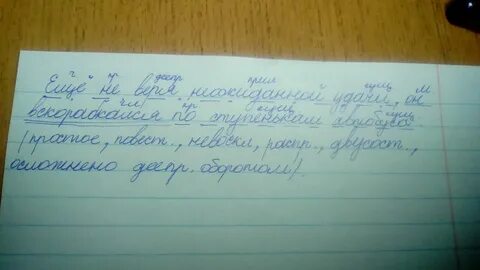 ч пр деепр прил сущ м
Ещё не веря неожиданной удачи, он
гл пр сущ сущ
вскарабкался по ступенькам автобуса.
(простое, повест., невоскл., распр., двусост.,
осложнено деепр. оборотом).